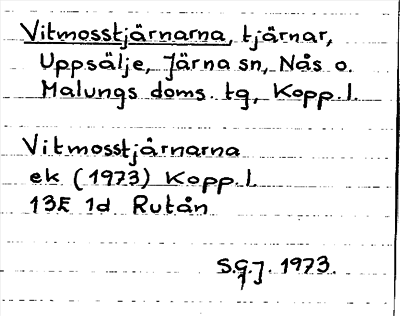 Vitmosstjärnarna, tjärnar,
Uppsälje, Järna sn, Nås o.
Malungs doms. tg, Kopp. l.
Vitmosstjärnarna
ek (1973) Kopp. l.
13E 1d Rutån
S.G.J. 1973.